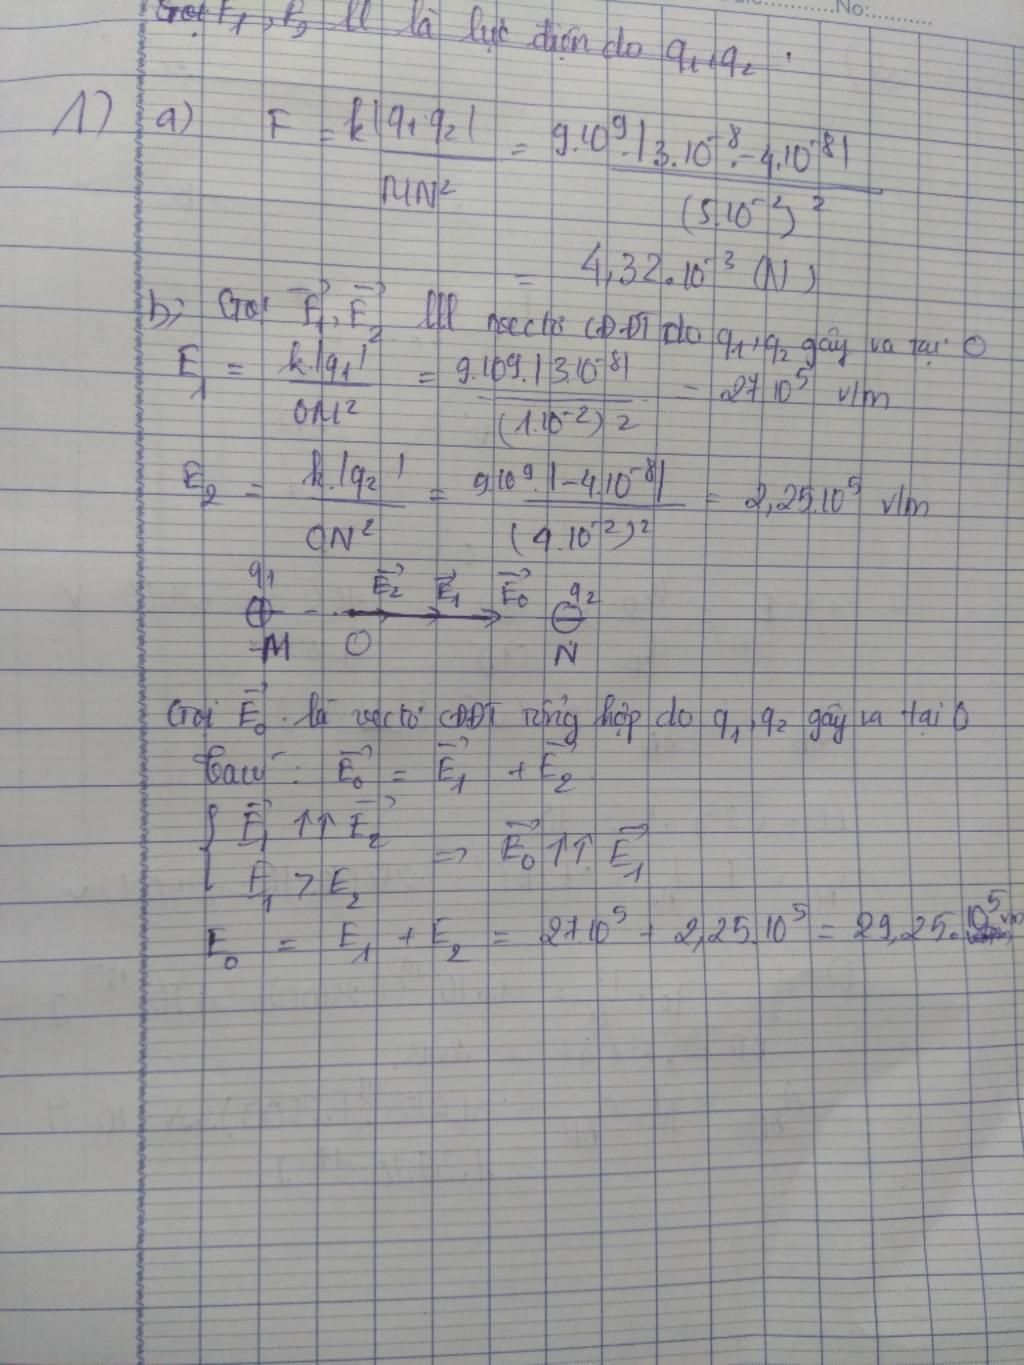 No:............
Gọi F₁, F₂ lll là lực điện do q₁, q₂.
1) a) F = k|q₁.q₂| / MN² = 9.10⁹.|3.10⁻⁸.-4.10⁻⁸| / (5.10⁻²)²
= 4,32.10⁻³ (N)
b) Gọi E₁→, E₂→ lll vectơ CĐĐT do q₁, q₂ gây ra tại O
E₁ = k.|q₁| / OM² = 9.10⁹.|3.10⁻⁸| / (1.10⁻²)² = 27 10⁵ v/m
E₂ = k.|q₂| / ON² = 9.10⁹.|-4.10⁻⁸| / (4.10⁻²)² = 2,25.10⁵ v/m
q₁ E₂→ E₁→ E₀→ q₂
M O N
Gọi E₀→ là vectơ CĐĐT tổng hợp do q₁, q₂ gây ra tại O
E₀→ = E₁→ + E₂→
{ E₁→ ↑↑ E₂→
E₁ > E₂ => E₀→ ↑↑ E₁→
E₀ = E₁ + E₂ = 27 10⁵ + 2,25.10⁵ = 29,25.10⁵ v/m